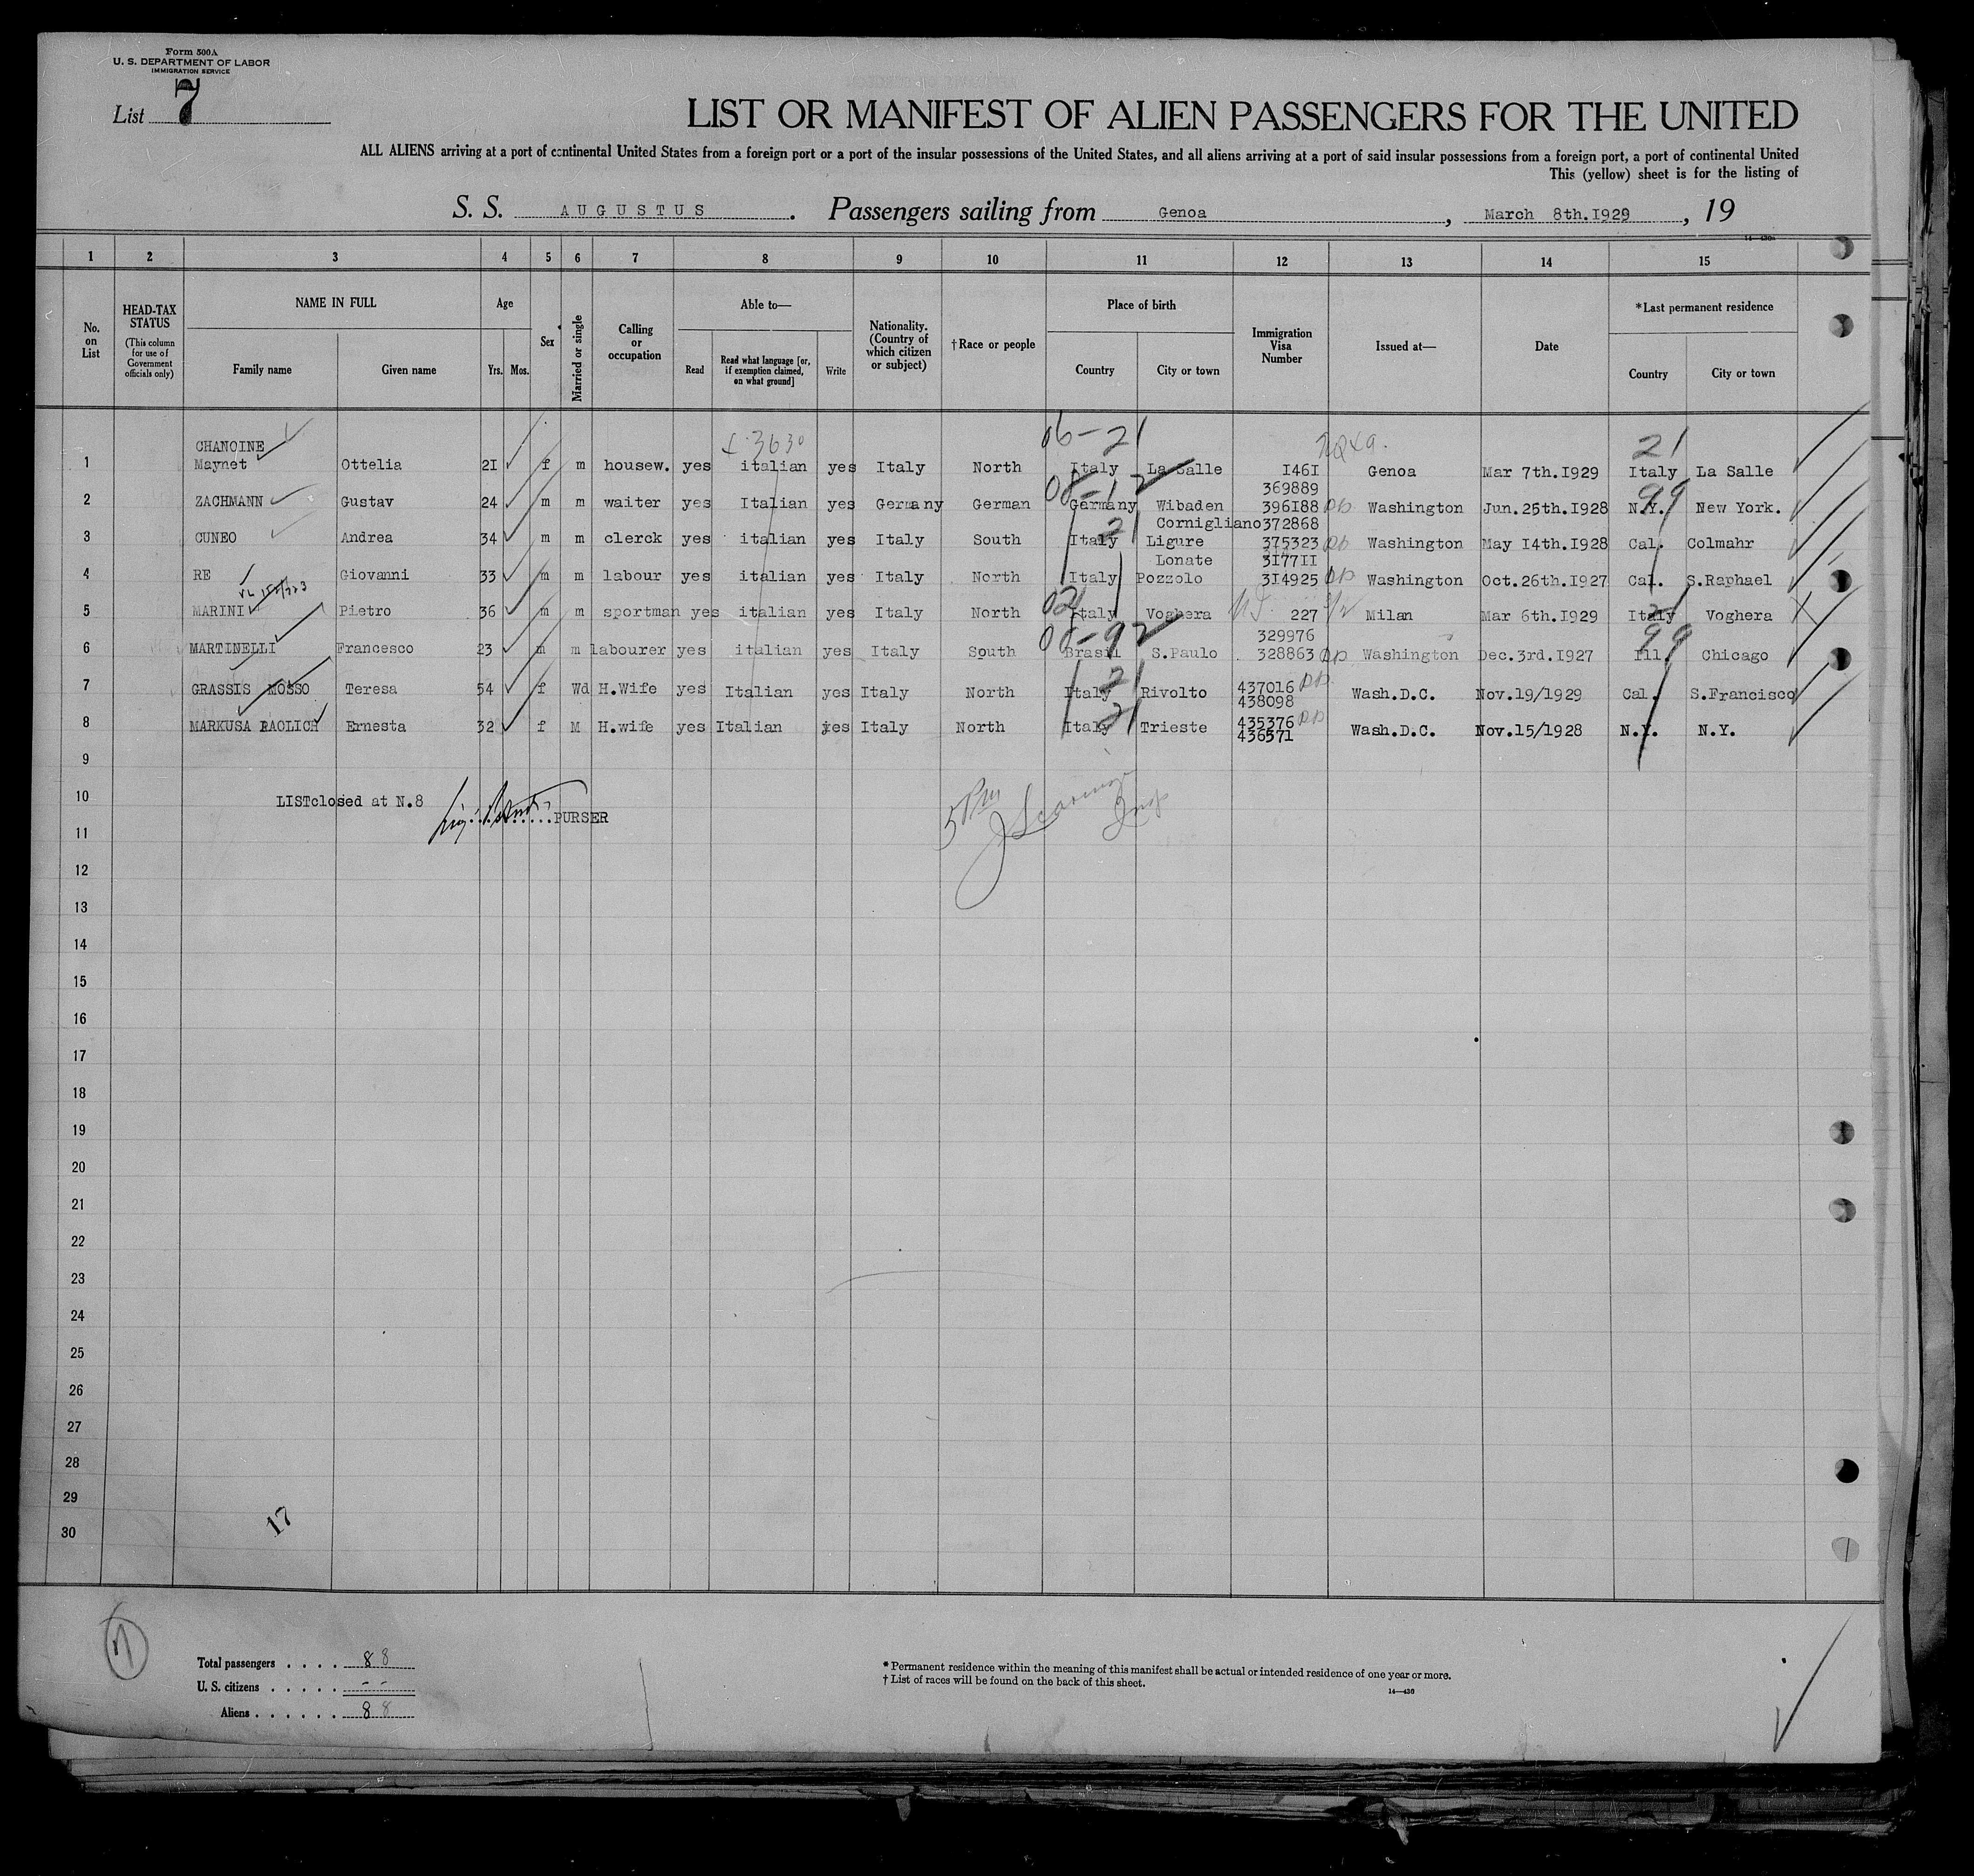 Form 500A
U. S. DEPARTMENT OF LABOR
IMMIGRATION SERVICE
List 7
LIST OR MANIFEST OF ALIEN PASSENGERS FOR THE UNITED
ALL ALIENS arriving at a port of continental United States from a foreign port or a port of the insular possessions of the United States, and all aliens arriving at a port of said insular possessions from a foreign port, a port of continental United
This (yellow) sheet is for the listing of
S. S. AUGUSTUS. Passengers sailing from Genoa, March 8th.I929, 19
14—430a
1 2 3 4 5 6 7 8 9 10 11 12 13 14 15
No. on List
HEAD-TAX STATUS (This column for use of Government officials only)
NAME IN FULL
Family name Given name
Age
Yrs. Mos.
Sex
Married or single
Calling or occupation
Able to—
Read
Read what language [or, if exemption claimed, on what ground]
Write
Nationality. (Country of which citizen or subject)
†Race or people
Place of birth
Country City or town
Immigration Visa Number
Issued at—
Date
*Last permanent residence
Country City or town
3630 06-21 21
CHANOINE
1 Maynet Ottelia 2I f m housew. yes italian yes Italy North Italy La Salle I46I Genoa Mar 7th.I929 Italy La Salle
08-12 369889 99
2 ZACHMANN Gustav 24 m m waiter yes Italian yes Germany German Germany Wibaden 396I88 Washington Jun.25th.I928 N.Y. New York.
21 Cornigliano 372868
3 CUNEO Andrea 34 m m clerck yes italian yes Italy South Italy Ligure 375323 Washington May I4th.I928 Cal. Colmahr
Lonate 3I77II
4 RE Giovanni 33 m m labour yes italian yes Italy North Italy Pozzolo 3I4925 Washington Oct.26th.I927 Cal. S.Raphael
02 21
5 MARINI Pietro 36 m m sportman yes italian yes Italy North Italy Voghera 227 Milan Mar 6th.I929 Italy Voghera
00-92 329976 99
6 MARTINELLI Francesco 23 m m labourer yes italian yes Italy South Brasil S.Paulo 328863 Washington Dec.3rd.I927 Ill. Chicago
21
7 GRASSIS MOSSO Teresa 54 f Wd H.Wife yes Italian yes Italy North Italy Rivolto 437016 Wash.D.C. Nov.19/1929 Cal. S.Francisco
438098
21
8 MARKUSA RAOLICH Ernesta 32 f M H.wife yes Italian yes Italy North Italy Trieste 435376 Wash.D.C. Nov.15/1928 N.Y. N.Y.
436571
9
10 LISTclosed at N.8
PURSER
5 Pm
11
12
13
14
15
16
17
18
19
20
21
22
23
24
25
26
27
28
29
17
30
7
Total passengers . . . . 8 8
U. S. citizens . . . . . - -
Aliens . . . . . . 8 8
* Permanent residence within the meaning of this manifest shall be actual or intended residence of one year or more.
† List of races will be found on the back of this sheet.
14—430